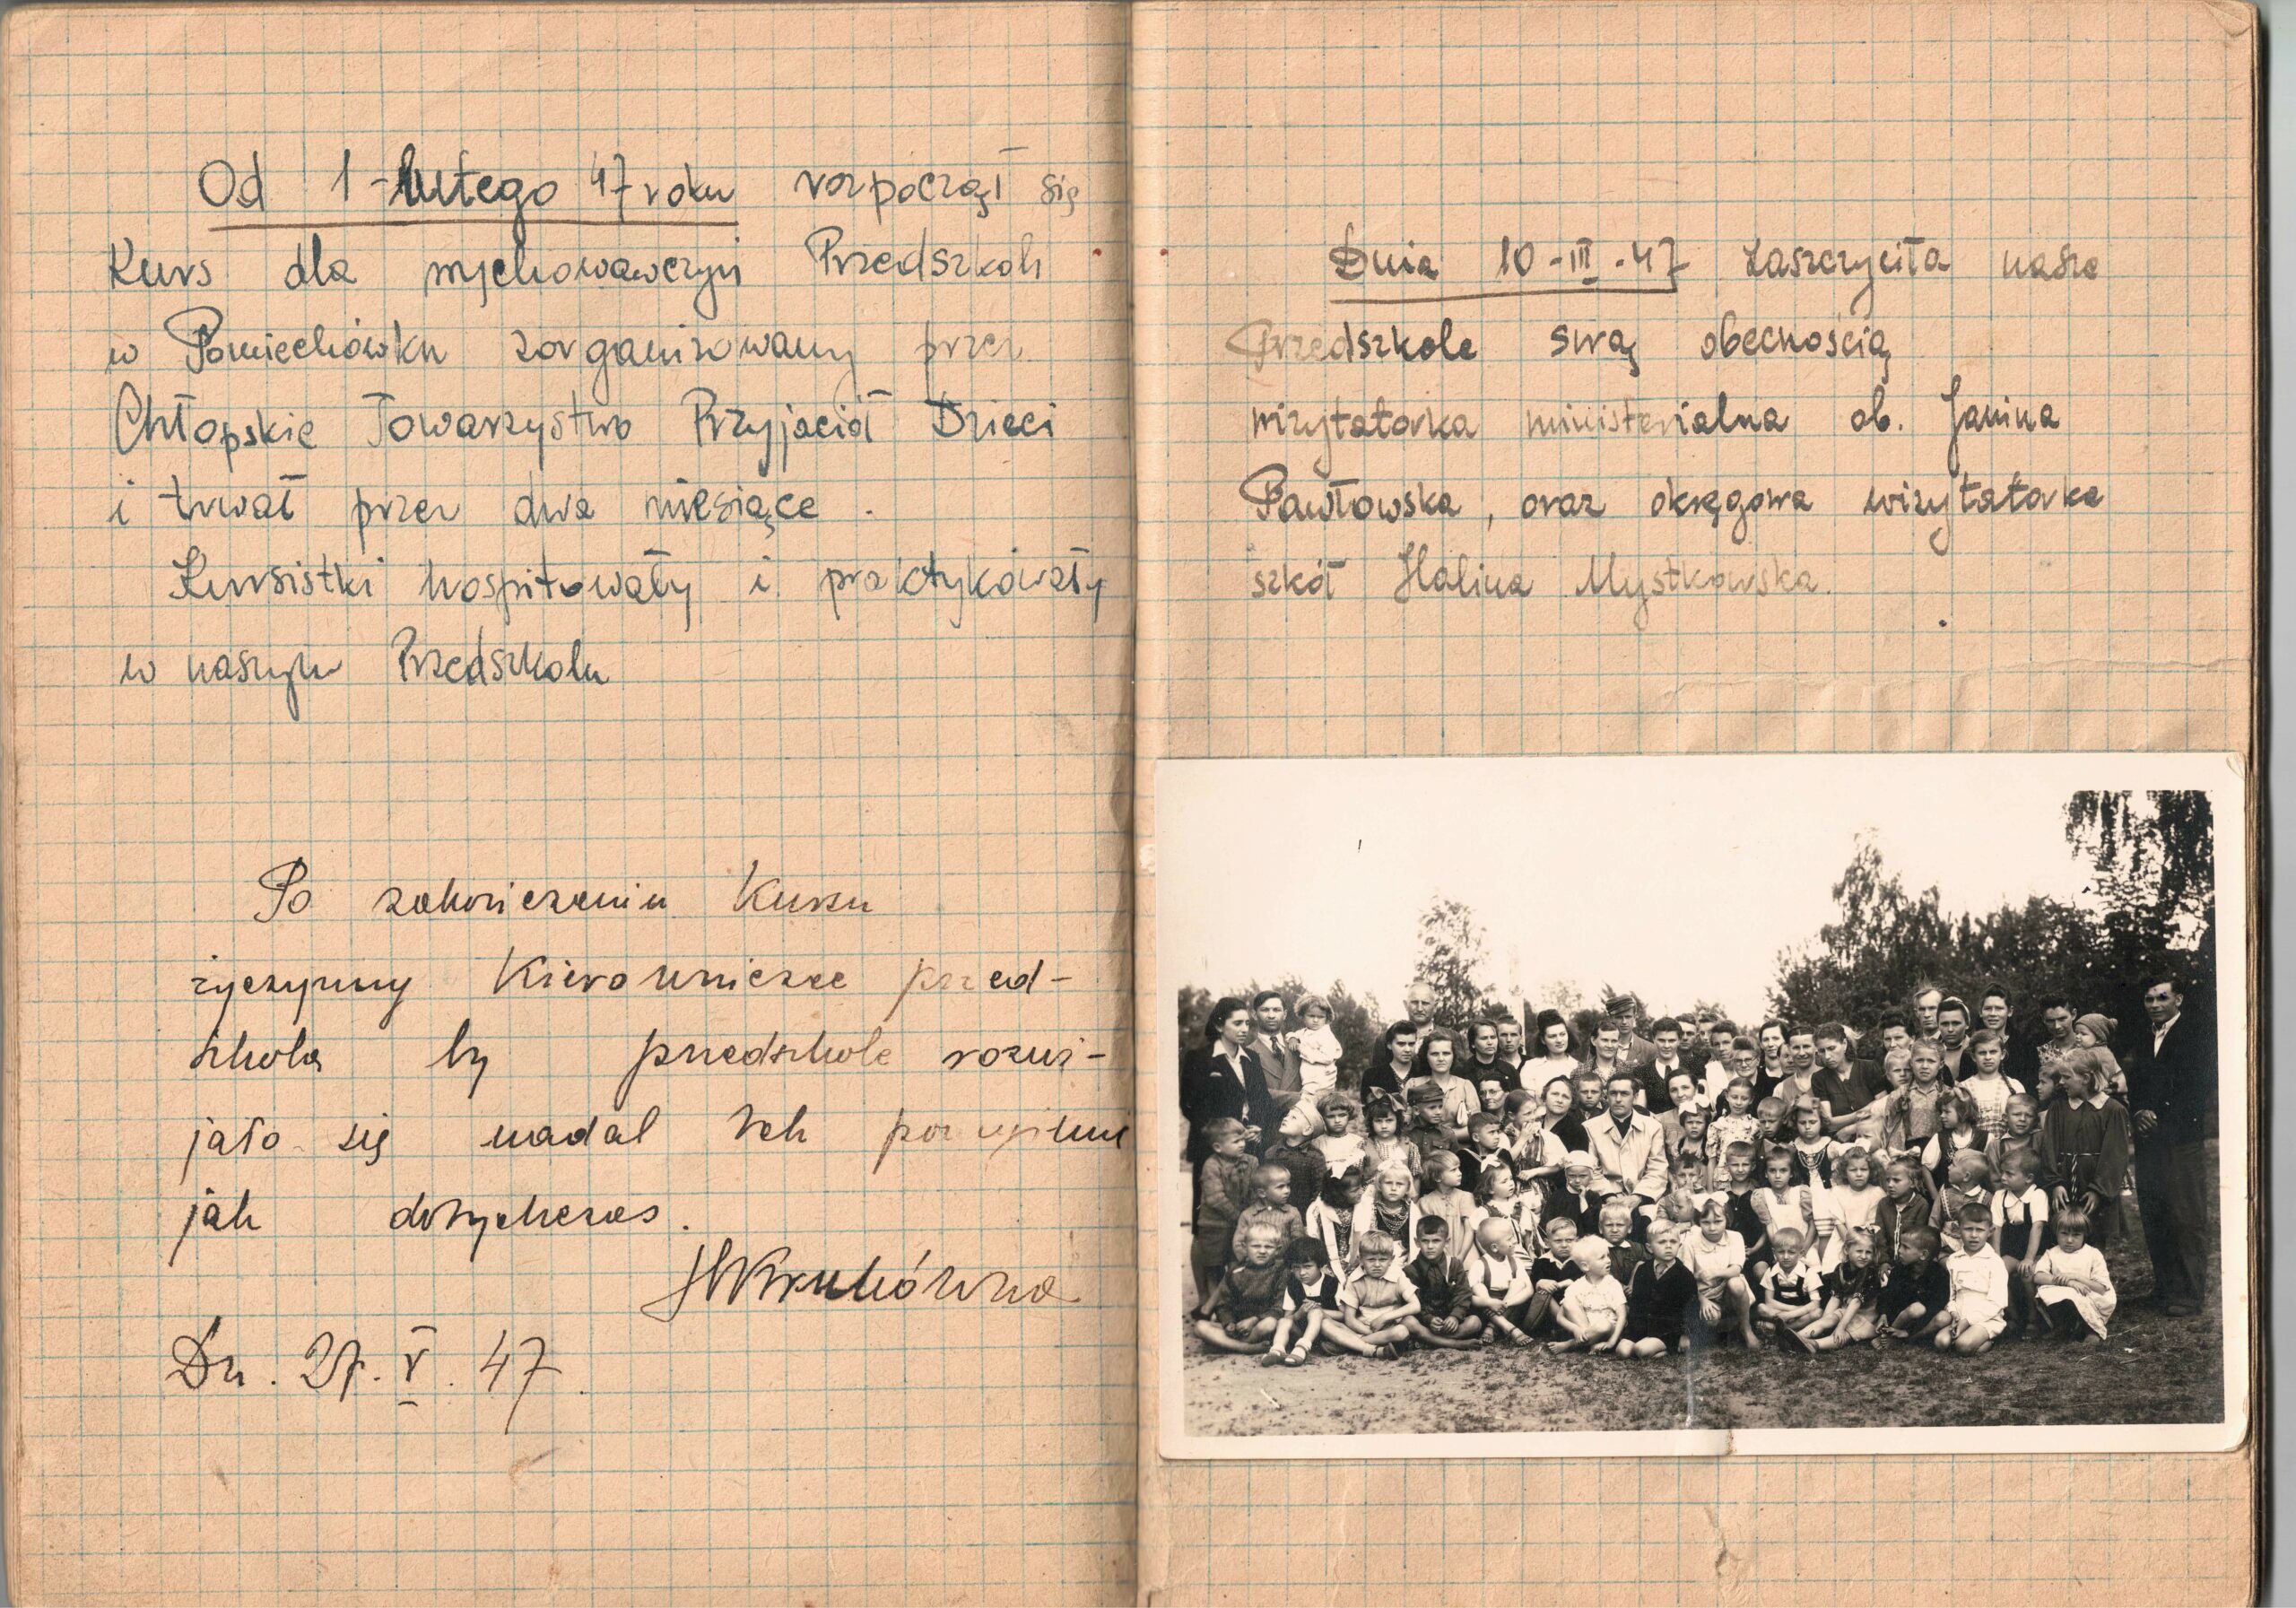 Od 1-lutego 47 roku rozpoczął się
Kurs dla wychowawczyń Przedszkoli
w Pomiechówku zorganizowany przez
Chłopskie Towarzystwo Przyjaciół Dzieci
i trwał przez dwa miesiące .
Kursistki hospitowały i praktykowały
w naszym Przedszkolu
Po zakończeniu Kursu
życzymy Kierowniczce przed-
szkola by przedszkole rozwi-
jało się nadal tak pomyślnie
jak dotychczas .
Dn. 27. V. 47
Dnia 10-III-47 zaszczyciła nasze
Przedszkole swą obecnością
wizytatorka ministerialna ob. Janina
Pawłowska, oraz okręgowa wizytatorka
szkół Halina Mystkowska.